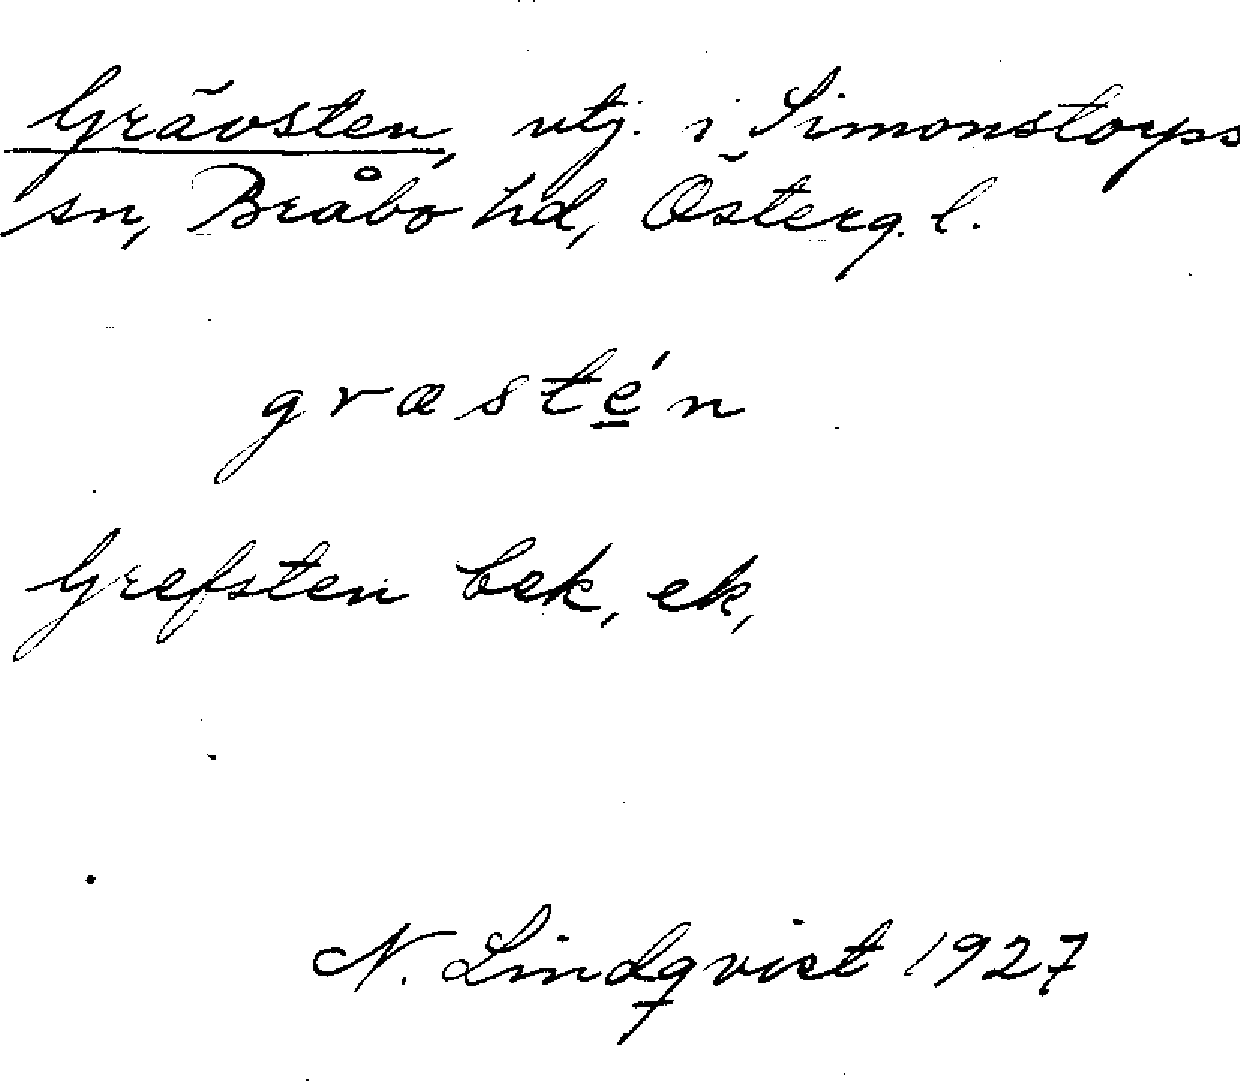 Grävsten, utj. i Simonstorps
sn, Bråbo hd, Österg. l.
græsté̲n
Grefsten bek, ek,
N. Lindqvist 1927